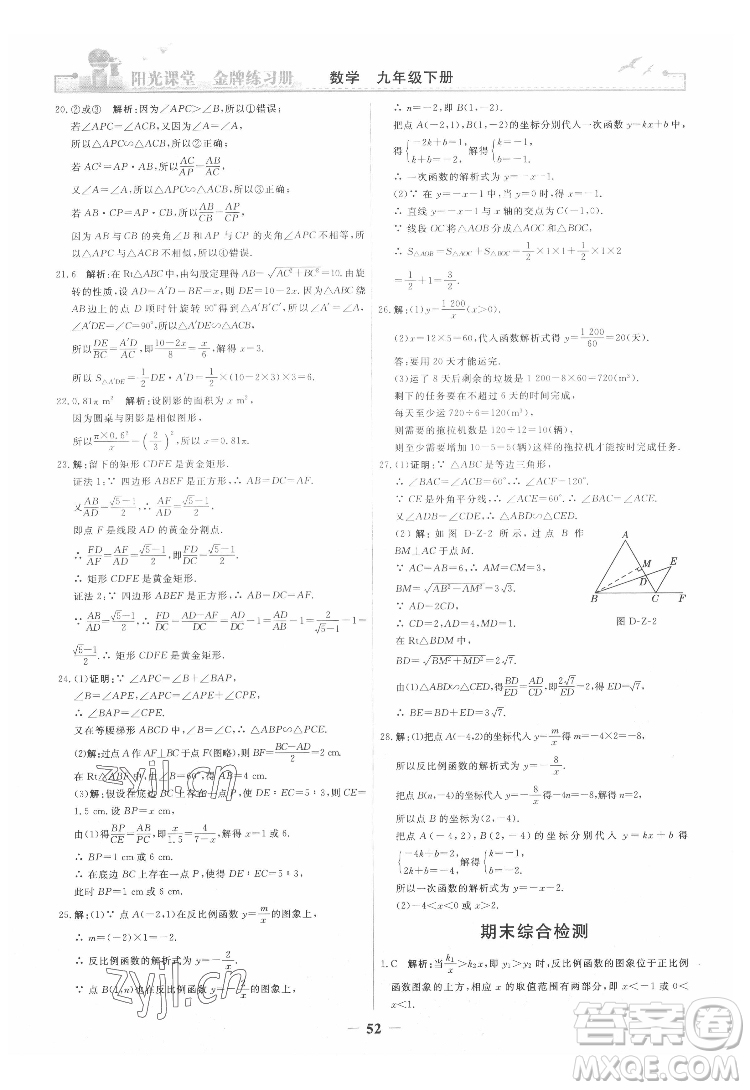 阳光课堂 金牌练习册 数学 九年级下册
20.②或③ 解析:因为∠APC>∠B,所以①错误;
若∠APC=∠ACB,又因为∠A=∠A,
所以△APC∽△ACB,所以②正确;
若AC²=AP·AB,所以AC/AP=AB/AC,
所以△APC∽△ACB,所以③正确;
若AB/CB=AC/CP,所以AB/AC=CB/CP,
因为AC与CB的夹角∠ACB和AP与CP的夹角∠APC不相等,所以△APC与△ACB不相似,所以④错误.
21.6 解析:在Rt△ABC中,由勾股定理得AB=√(AC²+BC²)=10.由旋
转的性质,设AD=A′D=BE=x,则DE=10-2x.因为△ABC绕
AB边上的点D顺时针旋转90°得到△A′B′C′,所以∠A′=∠A,
∠A′DE=∠C=90°,所以△A′DE∽△ACB,
所以DE/BC=A′D/AC,即(10-2x)/6=x/8,解得x=4,
所以S△A′DE=1/2DE×A′D=1/2×(10-2×4)×4=4.
22.0.81π m² 解析:设阴影的面积为x m².
因为圆桌与阴影是相似图形,
所以π×0.6²/x=(2/3)²,所以x=0.81π.
23.解:留下的矩形CDFE是黄金矩形.
证法1:∵四边形ABEF是正方形,∴AB=DC=AF.
又AB/AD=(√5-1)/2,∴AF/AD=(√5-1)/2,
即点F是线段AD的黄金分割点.
∴FD/AF=AF/AD=(√5-1)/2,∴FD/DC=(√5-1)/2.
∴矩形CDFE是黄金矩形.
证法2:∵四边形ABEF是正方形,∴AB=DC=AF.
∵AB/AD=(√5-1)/2,∴FD/DC=(AD-AF)/DC=AD/DC-AF/DC=AD/AB-1=2/(√5-1)-1=
(√5-1)/2.∴矩形CDFE是黄金矩形.
24.(1)证明:∵∠APC=∠B+∠BAP,
∠B=∠APE,∠APC=∠APE+∠CPE,
∴∠BAP=∠CPE.
又在等腰梯形ABCD中,∠B=∠C,∴△ABP∽△PCE.
(2)解:过点A作AF⊥BC于点F(图略),则BF=(BC-AD)/2=2 cm.
(3)解:假设在底边BC上存在一点P,使得DE∶EC=5∶3,则CE=
1.5 cm.设BP=x cm,则PC=(7-x) cm.
由(1)得BP/CE=AB/PC,即x/1.5=4/(7-x),解得x=1或6.
∴BP=1 cm或6 cm.
∴在底边BC上存在一点P,使得DE∶EC=5∶3,
此时BP=1 cm或BP=6 cm.
25.解:(1)∵点A(-2,1)在反比例函数y=m/x的图象上,
∴m=(-2)×1=-2.
∴反比例函数的解析式为y=-2/x.
∵点B(1,n)也在反比例函数y=-2/x的图象上,
∴n=-2,即B(1,-2).
把点A(-2,1),点B(1,-2)的坐标分别代入一次函数y=kx+b中,
得{-2k+b=1, k+b=-2,解得{k=-1, b=-1.
∴一次函数的解析式为y=-x-1.
(2)∵在y=-x-1中,当y=0时,x=-1,
∴直线y=-x-1与x轴的交点为C(-1,0).
∵线段OC将△AOB分成△AOC和△BOC,
∴S△AOB=S△AOC+S△BOC=1/2×1×1+1/2×1×2
=1/2+1=3/2.
26.解:(1)y=1 200/x(x>0).
(2)x=12×5=60,代入函数解析式得y=1 200/60=20(天).
答:需要用20天才能运完.
(3)运了8天后剩余的垃圾是1 200-8×60=720(m³).
剩下的任务要在不超过6天的时间完成,
每天至少运720÷6=120(m³),
则需要的拖拉机数是120÷12=10(辆),
故至少需要增加10-5=5(辆)这样的拖拉机才能按时完成任务.
27.(1)证明:∵△ABC是等边三角形,
∴∠BAC=∠ACB=60°,∠ACF=120°.
∵CE是外角平分线,∴∠ACE=60°,
∴∠BAC=∠ACE.
又∵∠ADB=∠CDE,∴△ABD∽△CED.
(2)解:如图D-Z-2,过点B作
BM⊥AC于点M.
∵AC=AB=6,∴AM=CM=3,
∴BM=√(AB²-AM²)=3√3.
∵AD=2CD,
∴CD=2,AD=4,MD=1.
在Rt△BDM中,
BD=√(BM²+MD²)=2√7.
由(1)△ABD∽△CED得BD/ED=AD/CD,即2√7/ED=2,
∴ED=√7,∴BE=BD+ED=3√7.
B M D E C F
图 D-Z-2
28.解:(1)把点A(-4,2)的坐标代入y=m/x,得m=-8,
所以反比例函数的解析式为y=-8/x.
把点B(n,-4)的坐标代入y=-8/x,得-4n=-8,解得n=2,
所以点B的坐标为(2,-4).
把点A(-4,2)和B(2,-4)的坐标代入y=kx+b,得
{-4k+b=2, 2k+b=-4,解得{k=-1, b=-2,
所以一次函数的解析式为y=-x-2.
期末综合检测
1.C 解析:当k₁/x>k₂x,即y₁>y₂时,反比例函数的图象位于正比例
函数图象的上方,相应的x的取值范围有两部分,即x<-1或0<
x<1.
52
zyjl.cn
zyjl.cn
答案圈
MXQE.COM